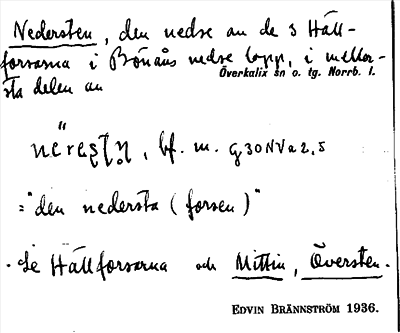 Nedersten, den nedre av de 3 Häll-
forsarna i Bönåns nedre lopp, i mellor-
Överkalix sn o. tg. Norrb. l.
sta delen av
bf. m. G30NVa2,5
="den nedersta (forsen)"
. Se Hällforsarna och Mittin, Översten.
EDVIN BRÄNNSTRÖM 1936.